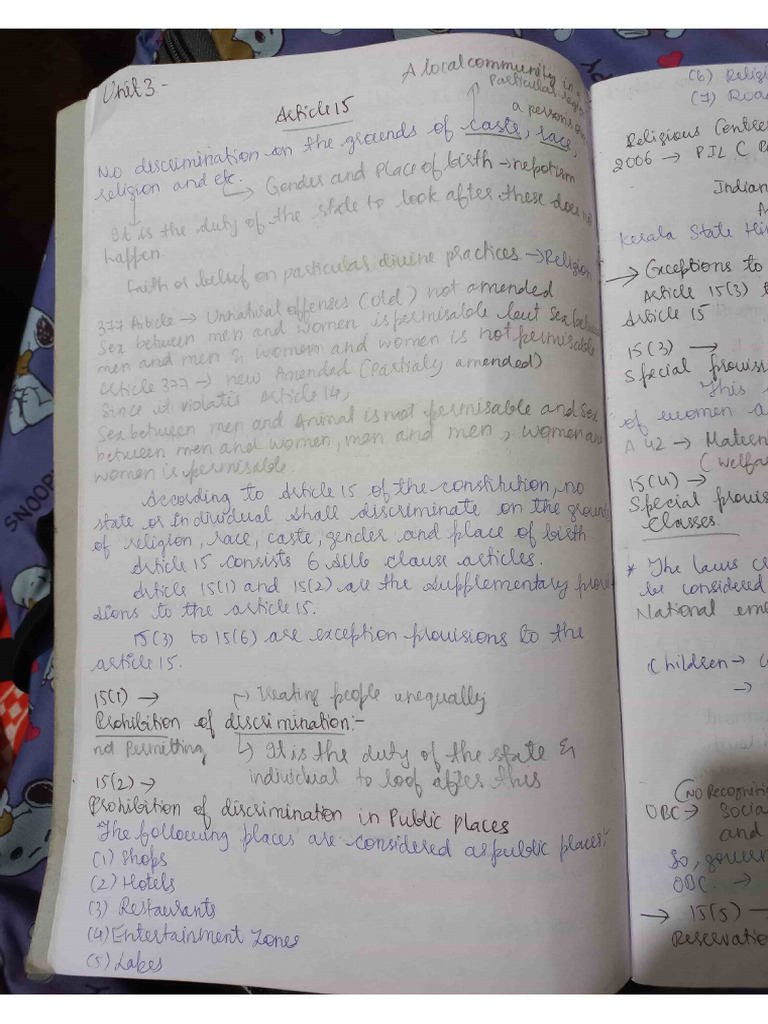 Unit 3:-
A local community in a
Particular
a persons
Article 15
No discrimination on the grounds of caste, race,
religion and etc.
Gender and Place of birth → nepotism
It is the duty of the state to look after these does not
happen.
Faith or belief on particular divine practices → Religion
377 Article → Unnatural offenses (old) not amended
Sex between men and women is permisable but Sex between
men and men & women and women is not permisable
Article 377 → new Amended (Partialy amended)
Since it violatis Article 14,
Sex between men and Animal is not permisable and Sex
between men and women, men and men, women and
women is permisable.
According to Article 15 of the constitution, no
state or Individual shall discriminate on the grounds
of religion, race, caste, gender and place of birth
Article 15 consists 6 sub clause articles.
Article 15(1) and 15(2) are the supplementary provi
sions to the article 15.
15(3) to 15(6) are exception provisions to the
article 15.
15(1) → Treating people unequally
Prohibition of discrimination:-
not Permitting
It is the duty of the state &
individual to loof after this
15(2) →
Prohibition of discrimination in Public places
The following places are considered as public places:
(1) Shops
(2) Hotels
(3) Restaurants
(4) Entertainment Zones
(5) Lakes
(6) Religi
(7) Roa
Religious Centre
2006 → PIL C
Indian
Kerala State
→ Exceptions to
Article 15(3) t
Article 15
15(3) →
Special provis
This
of women a
A 42 → Matern
(welfar
15(4) →
Special provis
Classes.
* The laws c
be considered
National em
Children →
→
(No Recogniti
OBC → Socia
and
So, govern
OBC. →
→ 15(5) →
Reservatio
SNOOPY